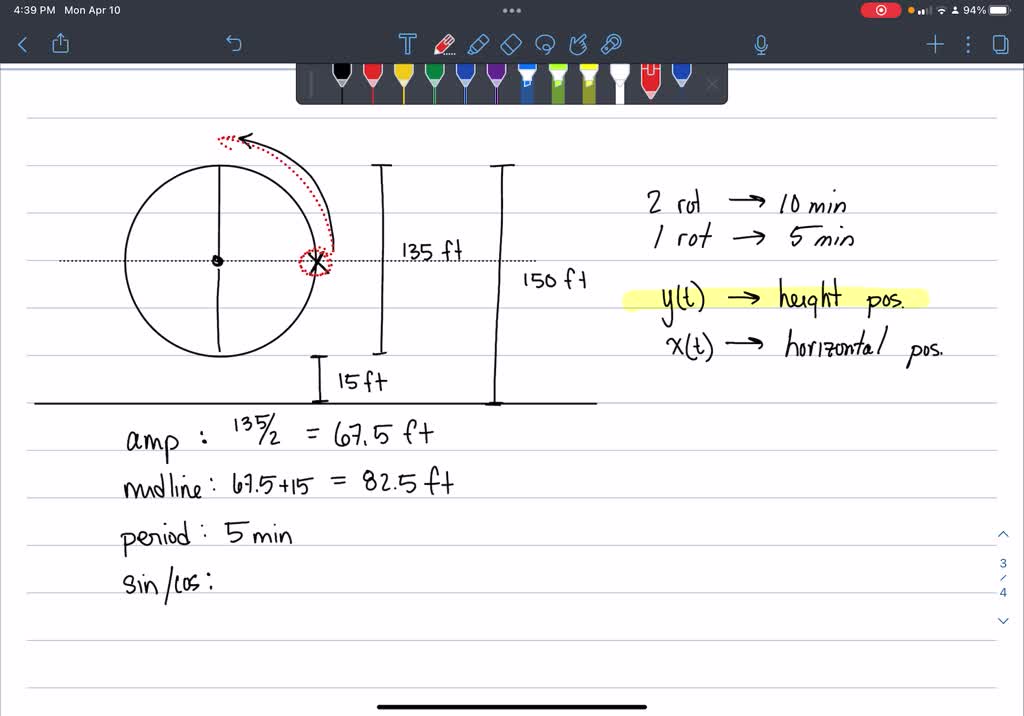 4:39 PM Mon Apr 10
94%
T
135 ft
150 ft
15 ft
2 rot → 10 min
1 rot → 5 min
y(t) → height pos.
x(t) → horizontal pos.
amp : 135/2 = 67.5 ft
midline : 67.5+15 = 82.5 ft
period : 5 min
sin/cos :
3
/
4